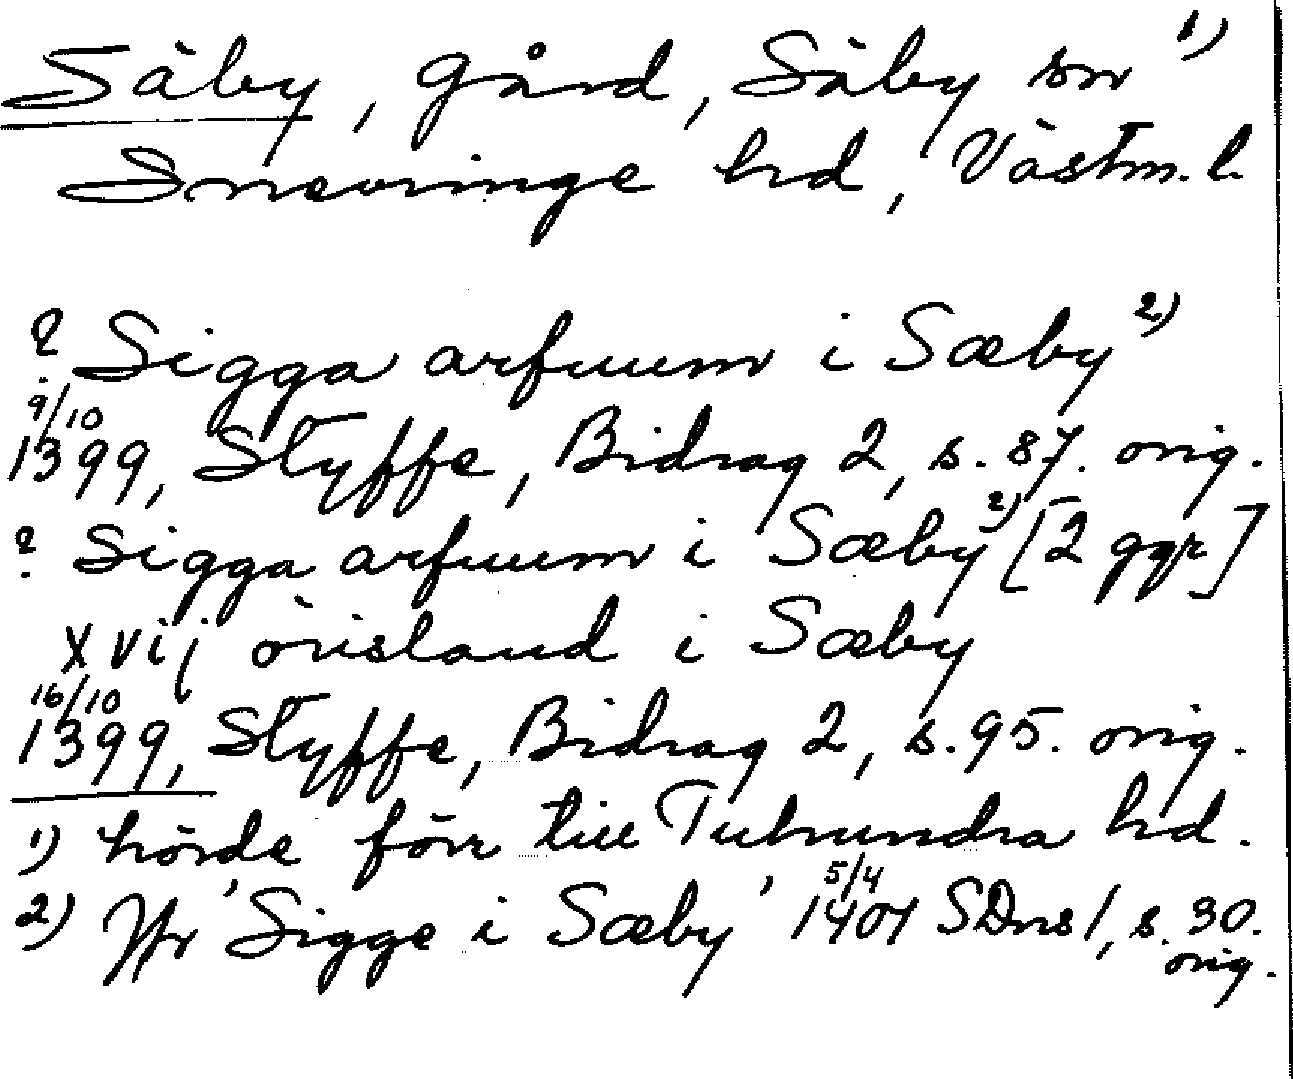 Säby, gård, Säby sn 1)
Snevringe hd, Västm. l.
? Sigga arfuum i Sæby 2)
9/10
1399, Styffe, Bidrag 2, s. 87. orig.
? Sigga arfuum i Sæby 2) [2 ggr]
xvij örisland i Sæby
16/10
1399, Styffe, Bidrag 2, s. 95. orig.
1) hörde förr till Tuhundra hd.
2) Jfr 'Sigge i Sæby' 5/4 1401 SDns 1, s. 30.
orig.